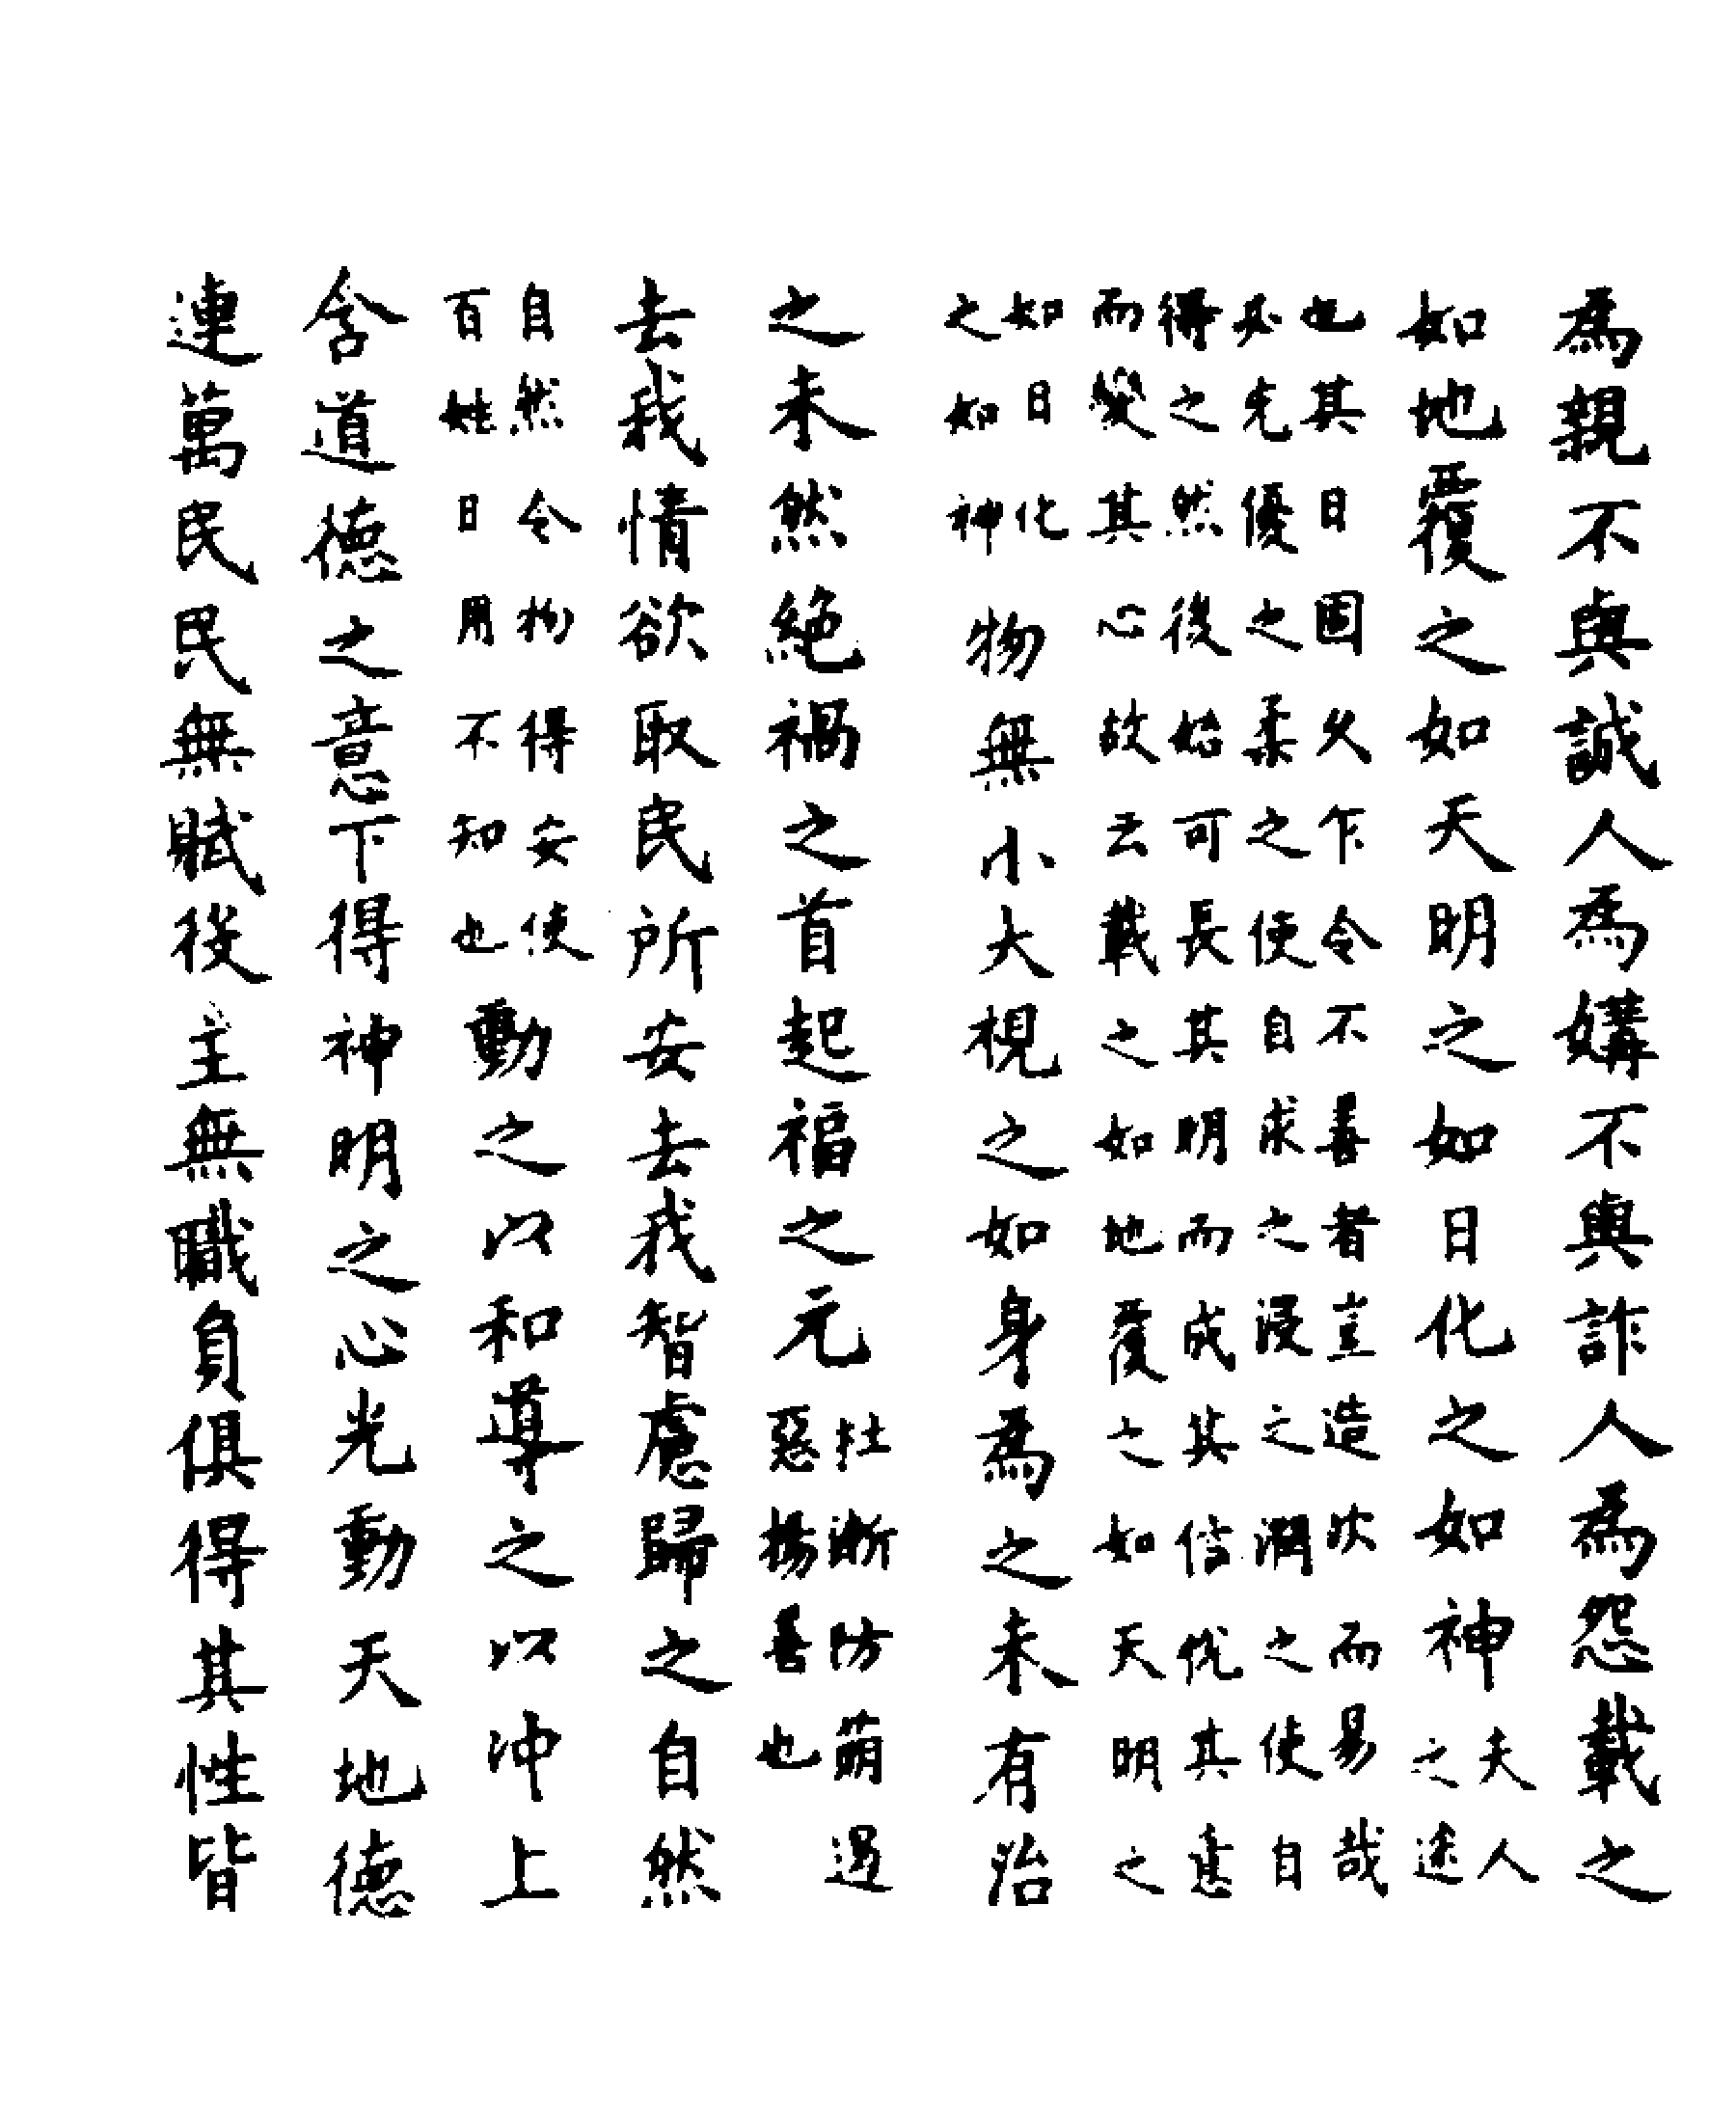 為親不與誠人為媾不與詐人為怨載之
如地覆之如天明之如日化之如神
夫人
之迷
也其日固久乍令不善者豈造次而易哉
必先優之柔之使自求之浸之潤之使自
得之然後始可長其明而成其信其
而變其心故云載之如地覆之如天明之
如日化
之如神
物無小大視之如身為之未有治
之未然絕禍之首起福之元
杜漸防萌遏
惡揚善也
去我情欲取民所安去我智慮歸之自然
自然令物得安使
百姓日用不知也
動之以和導之以冲上
含道德之意下得神明之心光動天地德
連萬民民無賦役主無職負俱得其性皆